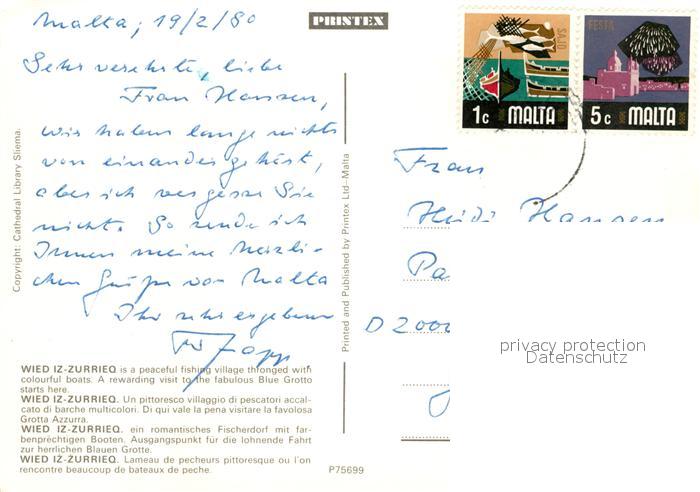 Malta, 19/2/80
Sehr verehrte, liebe
Frau Hansen,
wir haben lange nichts
von einander gehört,
aber ich vergesse Sie
nicht. So sende ich
Ihnen meine herzli-
chen Grüße von Malta
Ihr sehr ergebener
PRINTEX
SAJD
1c MALTA
FESTA
5c MALTA
Frau
Heidi Hansen
Pa
D 2000
privacy protection
Datenschutz
Copyright: Cathedral Library Sliema.
Printed and Published by Printex Ltd–Malta
WIED IZ-ZURRIEQ is a peaceful fishing village thronged with
colourful boats. A rewarding visit to the fabulous Blue Grotto
starts here.
WIED IZ-ZURRIEQ. Un pittoresco villaggio di pescatori accal-
cato di barche multicolori. Di qui vale la pena visitare la favolosa
Grotta Azzurra.
WIED IZ-ZURRIEQ. ein romantisches Fischerdorf mit far-
benprëchtigen Booten. Ausgangspunkt für die lohnende Fahrt
zur herrlichen Blauen Grotte.
WIED IZ-ZURRIEQ. Lameau de pecheurs pittoresque ou l'on
rencontre beaucoup de bateaux de peche.
P75699